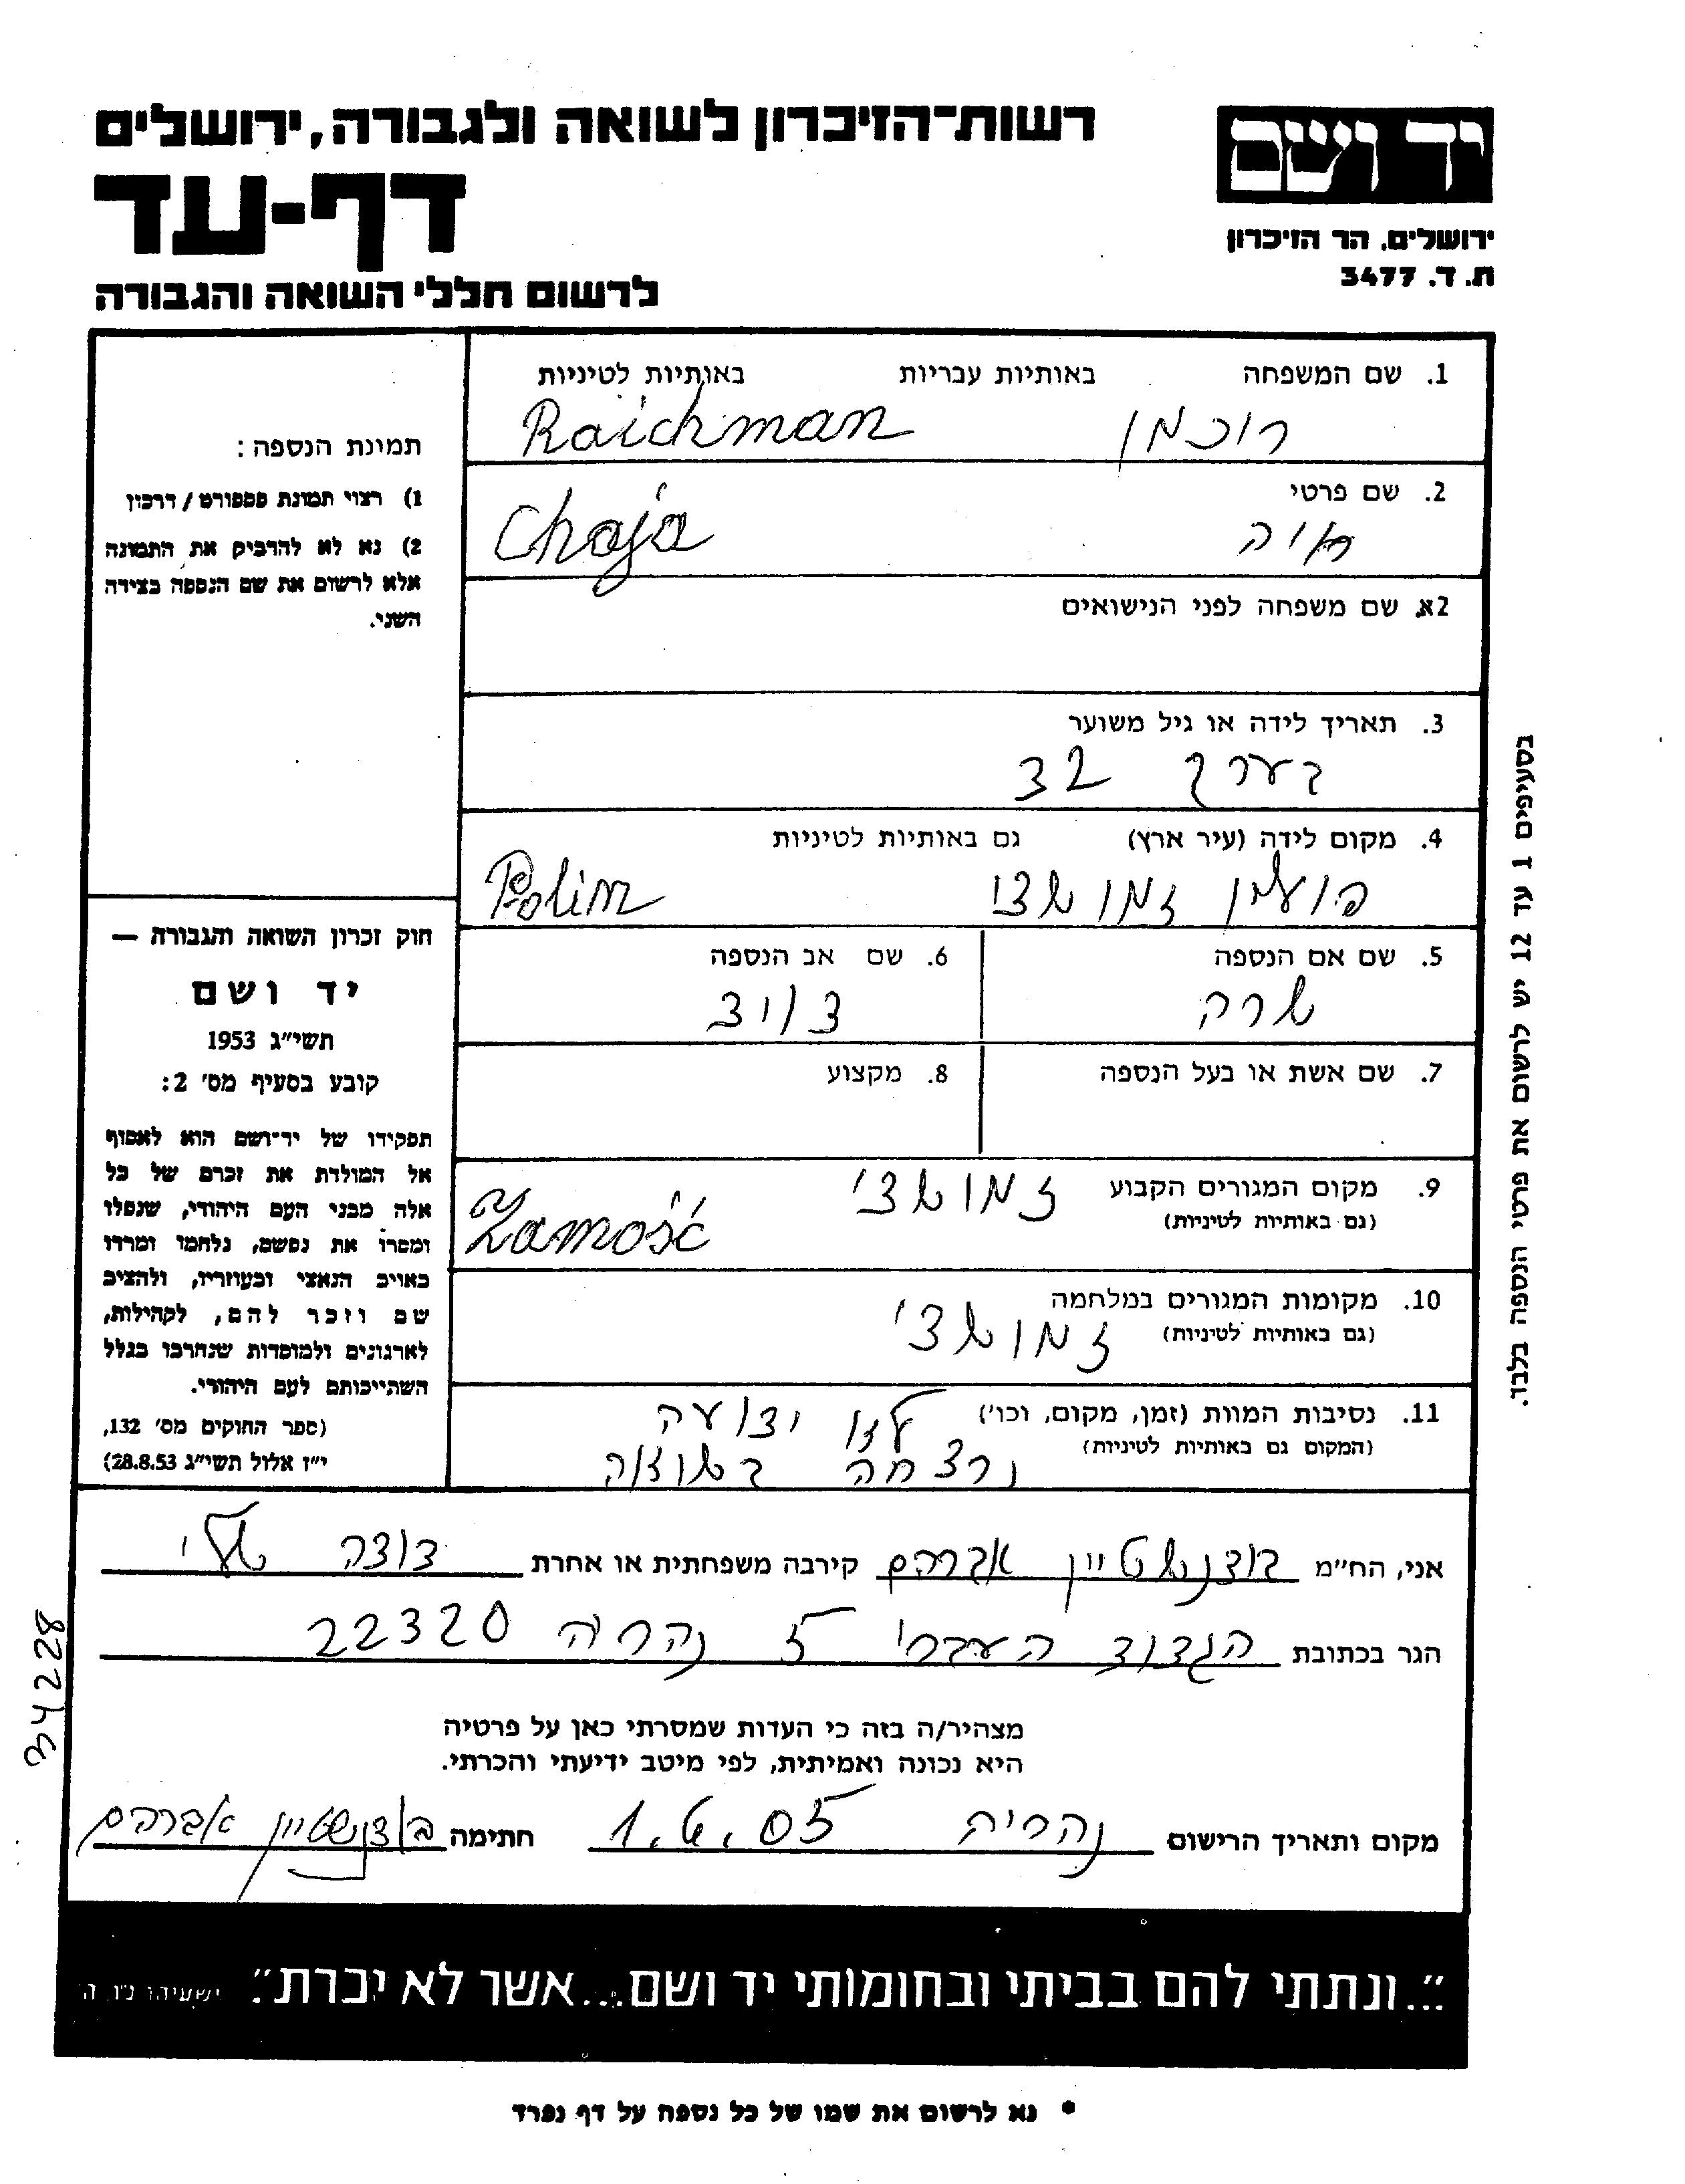 רשות־הזיכרון לשואה ולגבורה, ירושלים
יד ושם
דף-עד
ירושלים, הר הזיכרון
ת. ד. 3477
לרשום חללי השואה והגבורה
1. שם המשפחה באותיות עבריות באותיות לטיניות
רוכמן Raichman
2. שם פרטי
חיה Chaja
2א. שם משפחה לפני הנישואים
3. תאריך לידה או גיל משוער
בערך 32
4. מקום לידה (עיר ארץ) גם באותיות לטיניות
פולין זמושצ' Polin
5. שם אם הנספה
שרה
6. שם אב הנספה
דוד
7. שם אשת או בעל הנספה
8. מקצוע
9. מקום המגורים הקבוע זמושצ'
(גם באותיות לטיניות) Zamość
10. מקומות המגורים במלחמה
(גם באותיות לטיניות) זמושצ'
11. נסיבות המוות (זמן, מקום, וכו') לא ידועה
(המקום גם באותיות לטיניות) נרצחה בשואה
תמונת הנספה:
1) רצוי תמונת פספורט / דרכון
2) נא לא להדביק את התמונה
אלא לרשום את שם הנספה בצידה
השני.
חוק זכרון השואה והגבורה —
יד ושם
תשי״ג 1953
קובע בסעיף מס׳ 2:
תפקידו של יד־ושם הוא לאסוף
אל המולדת את זכרם של כל
אלה מבני העם היהודי, שנפלו
ומסרו את נפשם, נלחמו ומרדו
באויב הנאצי ובעוזריו, ולהציב
שם וזכר להם, לקהילות,
לארגונים ולמוסדות שנחרבו בגלל
השתייכותם לעם היהודי.
(ספר החוקים מס׳ 132,
י״ז אלול תשי״ג 28.8.53)
בסעיפים 1 עד 12 יש לרשום את פרטי הנספה בלבד.
אני, הח״מ בודנשטיין אברהם קירבה משפחתית או אחרת דודה שלי
הגר בכתובת הגדוד העברי 5 נהריה 22320
34228
מצהיר/ה בזה כי העדות שמסרתי כאן על פרטיה
היא נכונה ואמיתית, לפי מיטב ידיעתי והכרתי.
מקום ותאריך הרישום נהריה 1.6.05 חתימה בודנשטיין אברהם
״...ונתתי להם בביתי ובחומותי יד ושם...אשר לא יכרת״. ישעיהו נ״ו, ה׳
* נא לרשום את שמו של כל נספה על דף נפרד